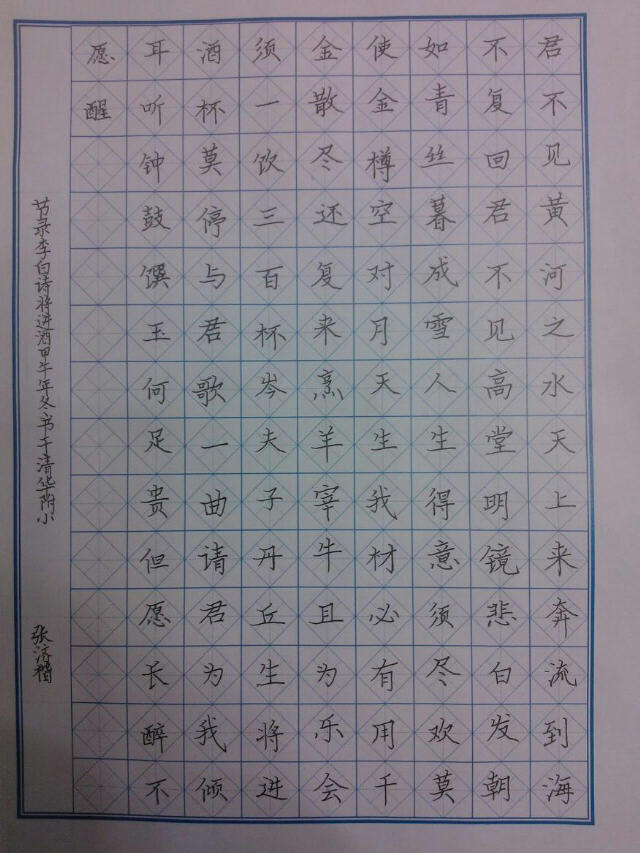 君不见黄河之水天上来奔流到海
不复回君不见高堂明镜悲白发朝
如青丝暮成雪人生得意须尽欢莫
使金樽空对月天生我材必有用千
金散尽还复来烹羊宰牛且为乐会
须一饮三百杯岑夫子丹丘生将进
酒杯莫停与君歌一曲请君为我倾
耳听钟鼓馔玉何足贵但愿长醉不
愿醒
节录李白诗将进酒甲午年冬书于清华附小
张